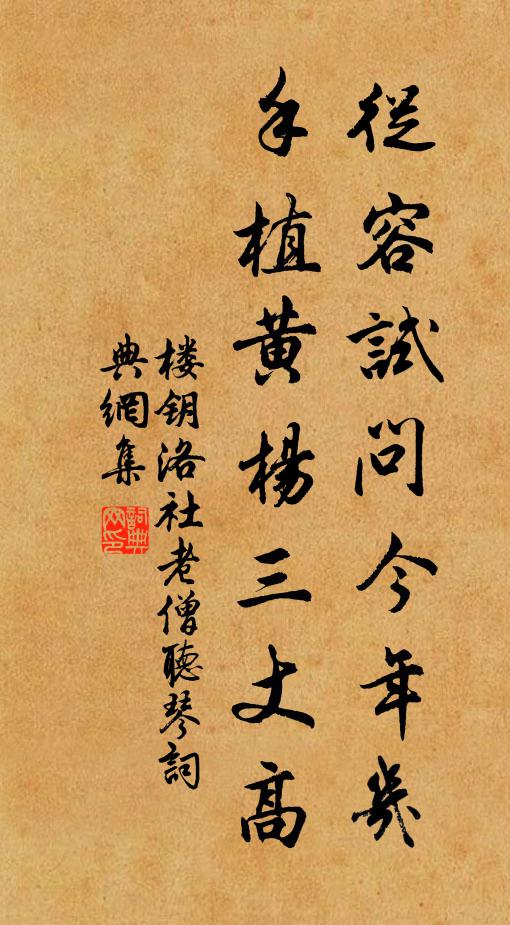 從容試問今年幾
手植黄楊三丈高
楼钥洛社老僧聽琴詞
典網集
詞典網印